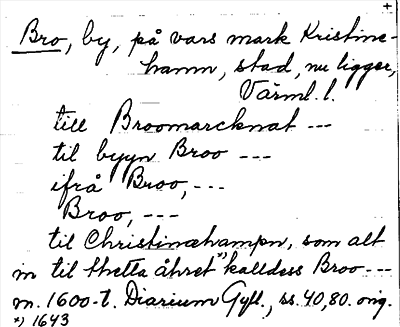 +
Bro, by, på vars mark Kristine-
hamn, stad, nu ligger,
Värml. l.
till Broomarcknat ---
til byyn Broo ---
ifrå Broo, ---
Broo, ---
til Christinæhampn, som alt
in til thetta åhret *) kalldess Broo ---
m. 1600-t. Diarium Gyll., ss. 40, 80. orig.
*) 1643